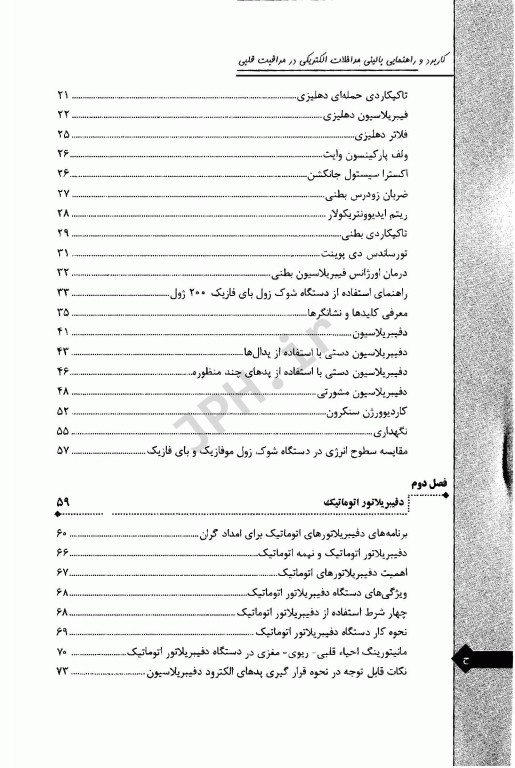 کاربرد و راهنمایی بالینی مداخلات الکتریکی در مراقبت قلبی
تاکیکاردی حمله‌ای دهلیزی ۲۱
فیبریلاسیون دهلیزی ۲۲
فلاتر دهلیزی ۲۵
ولف پارکینسون وایت ۲۶
اکسترا سیستول جانکشن ۲۶
ضربان زودرس بطنی ۲۷
ریتم ایدیوونتریکولار ۲۸
تاکیکاردی بطنی ۲۹
تورساندس دی پوینت ۳۱
درمان اورژانس فیبریلاسیون بطنی ۳۲
راهنمای استفاده از دستگاه شوک زول بای فازیک ۲۰۰ ژول ۳۳
معرفی کلیدها و نشانگرها ۳۵
دفیبریلاسیون ۴۱
دفیبریلاسیون دستی با استفاده از پدال‌ها ۴۳
دفیبریلاسیون دستی با استفاده از پدهای چند منظوره ۴۶
دفیبریلاسیون مشورتی ۴۸
کاردیوورژن سنکرون ۵۲
نگهداری ۵۵
مقایسه سطوح انرژی در دستگاه شوک زول موفازیک و بای فازیک ۵۷
فصل دوم
دفیبریلاتور اتوماتیک ۵۹
برنامه‌های دفیبریلاتورهای اتوماتیک برای امداد گران ۶۰
دفیبریلاتور اتوماتیک و نیمه اتوماتیک ۶۶
اهمیت دفیبریلاتورهای اتوماتیک ۶۷
ویژگی‌های دستگاه دفیبریلاتور اتوماتیک ۶۸
چهار شرط استفاده از دفیبریلاتور اتوماتیک ۶۸
نحوه کار دستگاه دفیبریلاتور اتوماتیک ۶۹
مانیتورینگ احیاء قلبی- ریوی- مغزی در دستگاه دفیبریلاتور اتوماتیک ۷۰
نکات قابل توجه در نحوه قرار گیری پدهای الکترود دفیبریلاسیون ۷۳
ح
JPH.ir